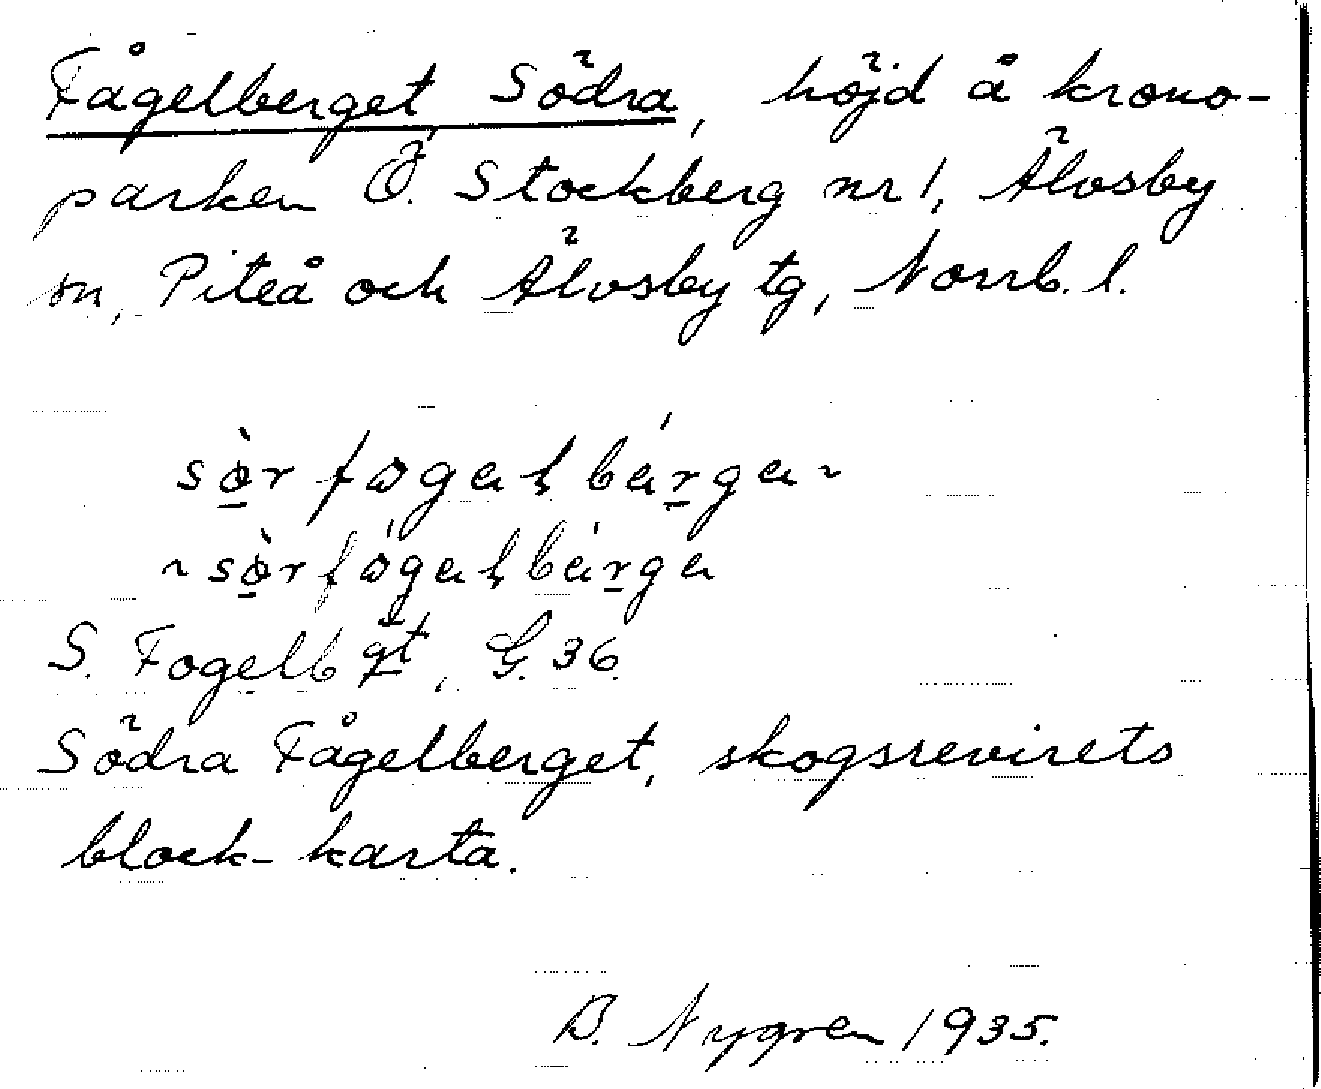 Fågelberget, Södra, höjd å krono-
parken Ö. Stockberg nr 1, Älvsby
sn, Piteå och Älvsby tg, Norrb. l.
S. Fogelbgt, G. 36.
Södra Fågelberget, skogsrevirets
block-karta.
B. Nygren 1935.